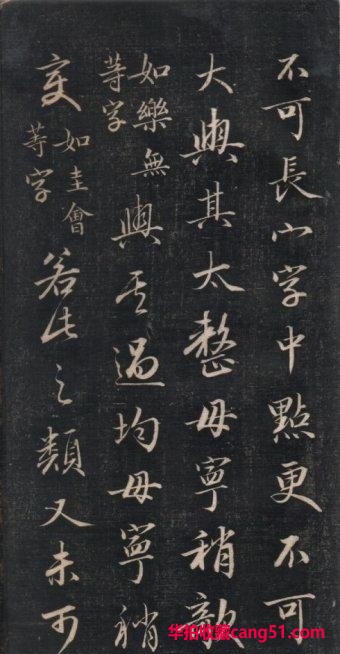 不可長宀字中點更不可
大與其太整毋寧稍欹
如樂無
等字
與其過均毋寧稍
変
如圭會
等字
若此之類又未可
华拍收藏cang51.com